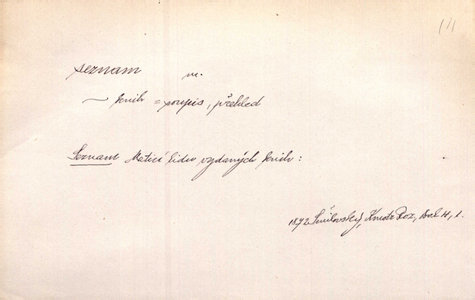 (1)
seznam m.
~ knih = soupis, přehled
Seznam Maticí lidu vydaných knih:
1892 Šmilovský,